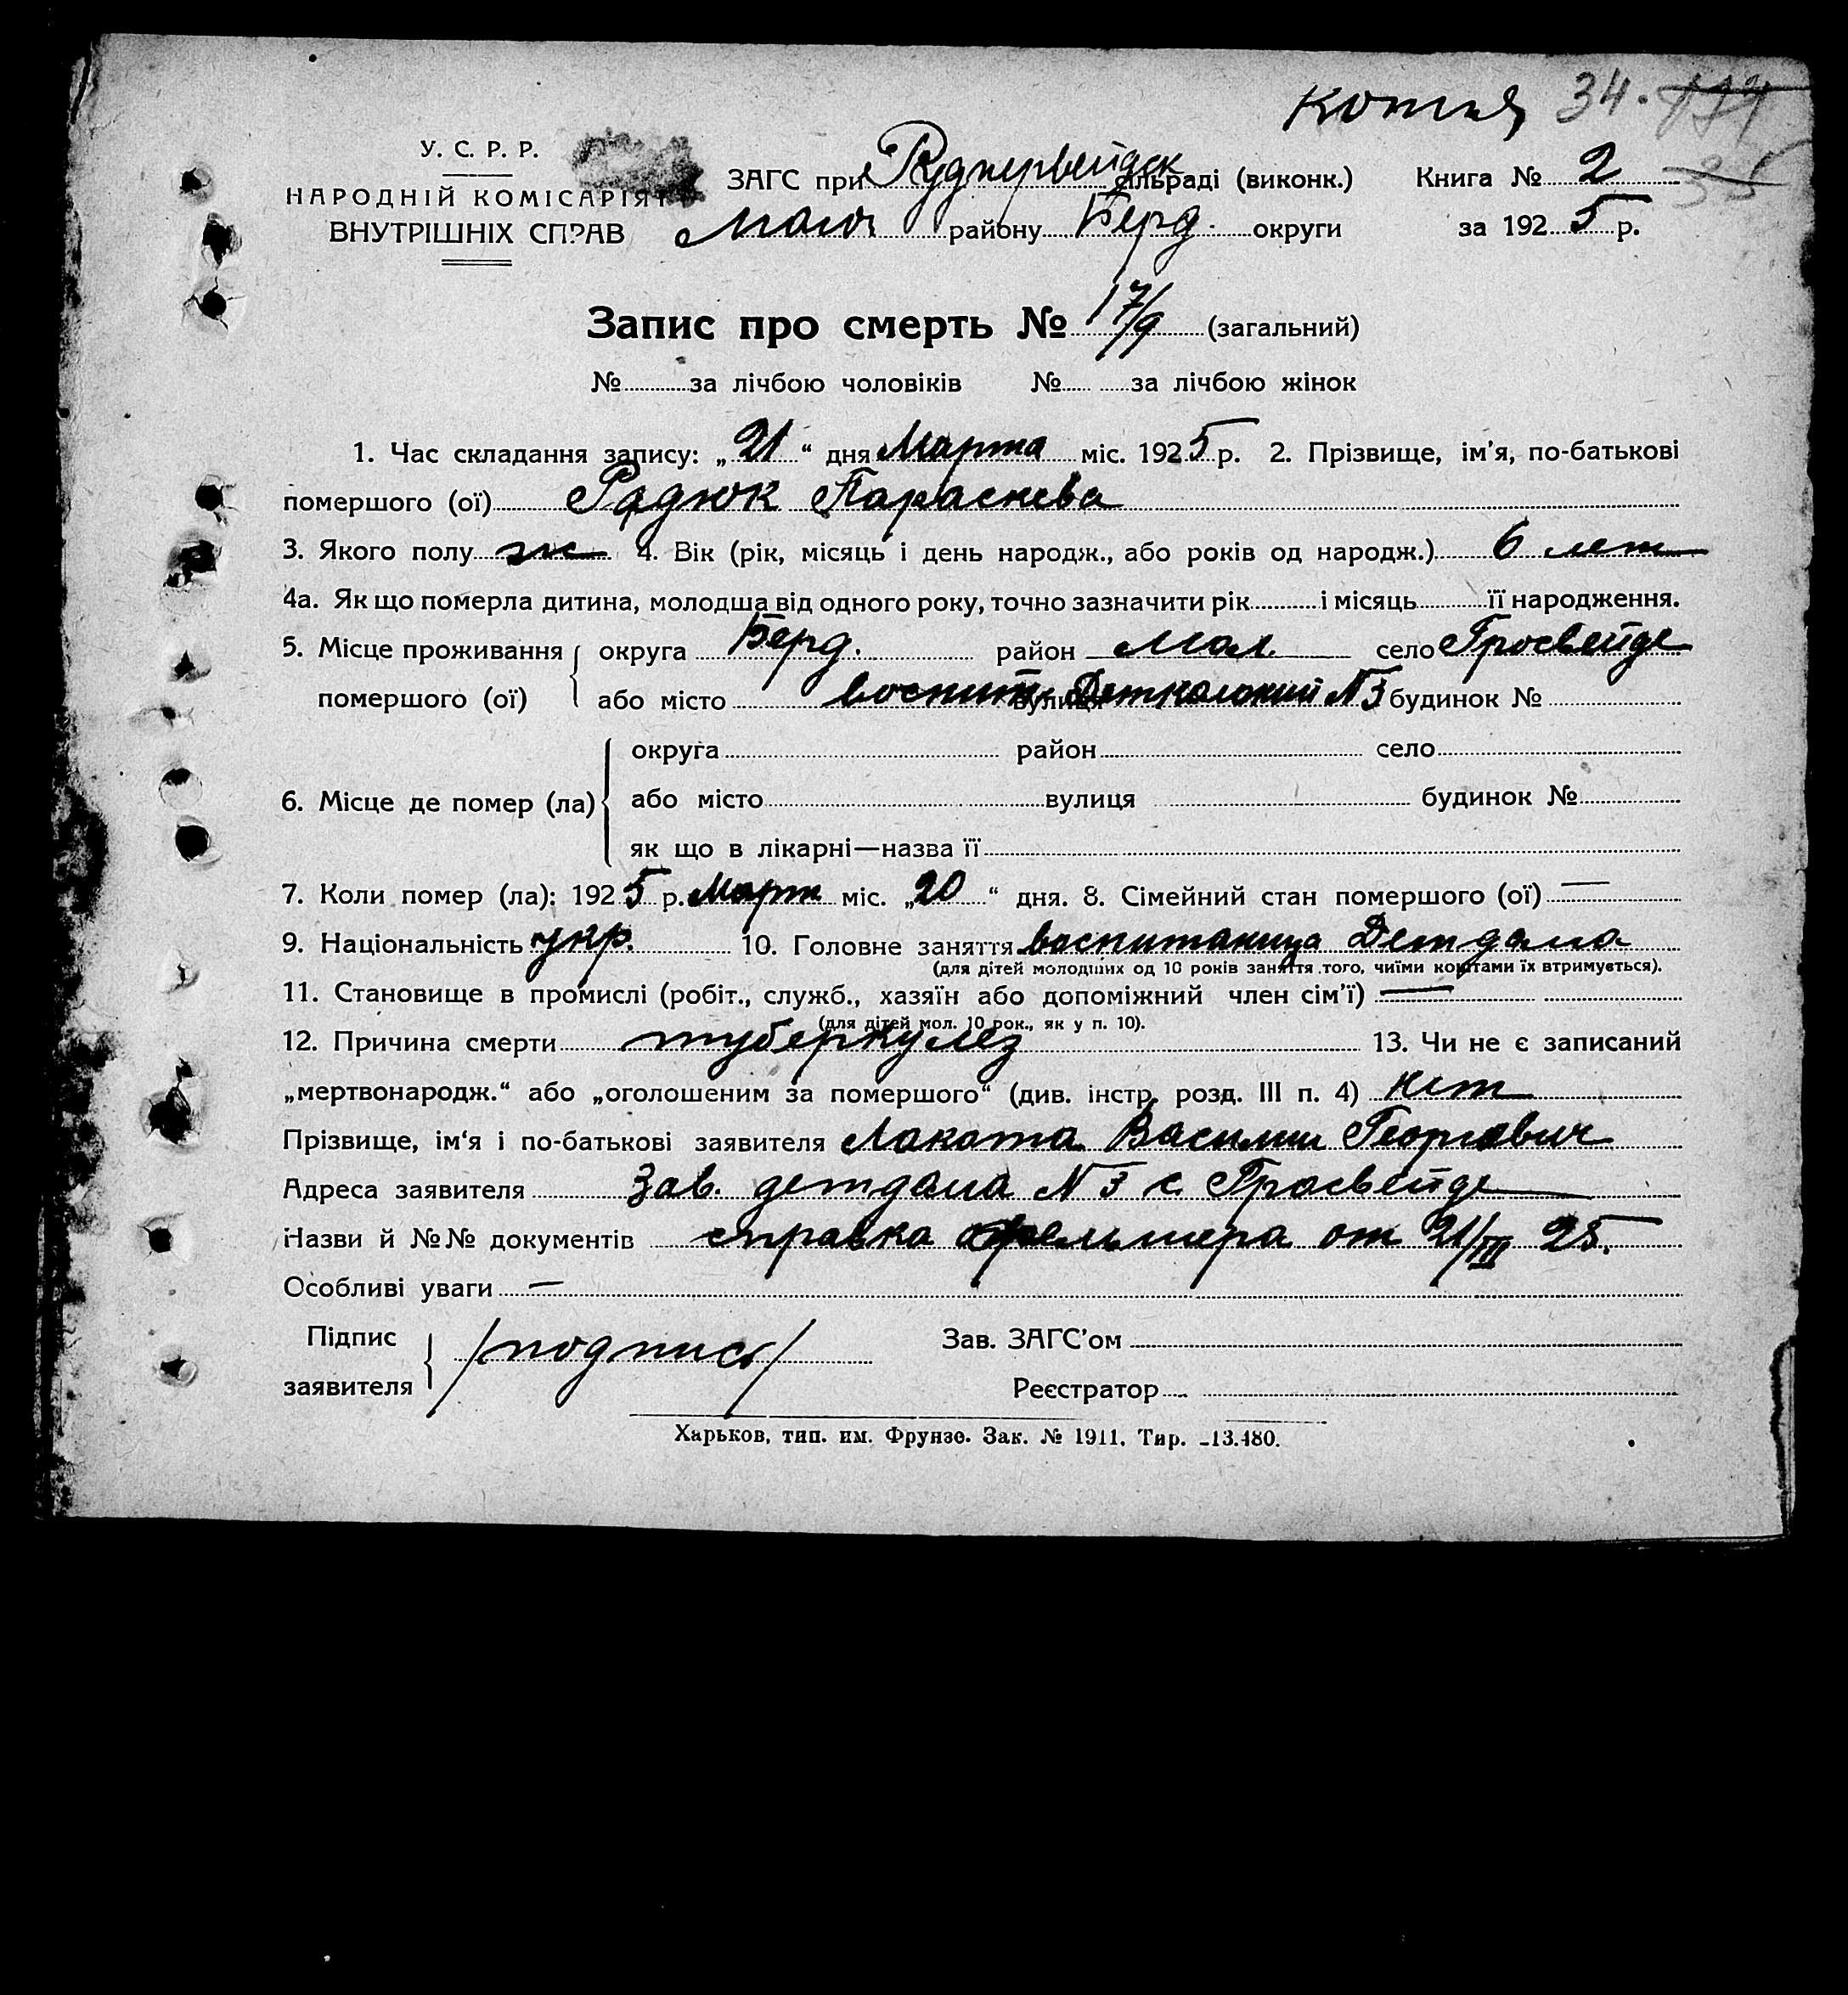 копия 34.
У. С. Р. Р.
НАРОДНІЙ КОМІСАРІЯТ
ВНУТРІШНІХ СПРАВ
ЗАГС при Руднервейдск сільраді (виконк.) Книга № 2 35
Молоч району Берд. округи за 1925 р.
Запис про смерть № 17/9 (загальний)
№ за лічбою чоловіків № за лічбою жінок
1. Час складання запису: „21“ дня Марта міс. 1925 р. 2. Прізвище, ім'я, по-батькові
помершого (ої) Радюк Параскева
3. Якого полу ж 4. Вік (рік, місяць і день народж., або років од народж.) 6 лет
4а. Як що померла дитина, молодша від одного року, точно зазначити рік і місяць її народження.
5. Місце проживання округа Берд. район Мол. село Гросвейде
помершого (ої) або місто воспит. вулиця Детколоний №3 будинок №
округа район село
6. Місце де помер (ла) або місто вулиця будинок №
як що в лікарні—назва її
7. Коли помер (ла): 1925 р. Март міс. „20“ дня. 8. Сімейний стан помершого (ої) —
9. Національність укр. 10. Головне заняття воспитаница Детдома
(для дітей молодших од 10 років заняття того, чиїми коштами їх втримується).
11. Становище в промислі (робіт., служб., хазяїн або допоміжний член сім'ї) —
(для дітей мол. 10 рок., як у п. 10).
12. Причина смерти туберкулез 13. Чи не є записаний
„мертвонародж.“ або „оголошеним за помершого“ (див. інстр. розд. III п. 4) нет
Прізвище, ім'я і по-батькові заявителя Лаката Василий Георгиевич
Адреса заявителя Зав. детдома №3 с. Гросвейде
Назви й №№ документів справка фельшера от 21/III 25.
Особливі уваги —
Підпис
заявителя /подпись/
Зав. ЗАГС'ом
Реєстратор
Харьков, тип. им. Фрунзе. Зак. № 1911. Тир. 13.480.